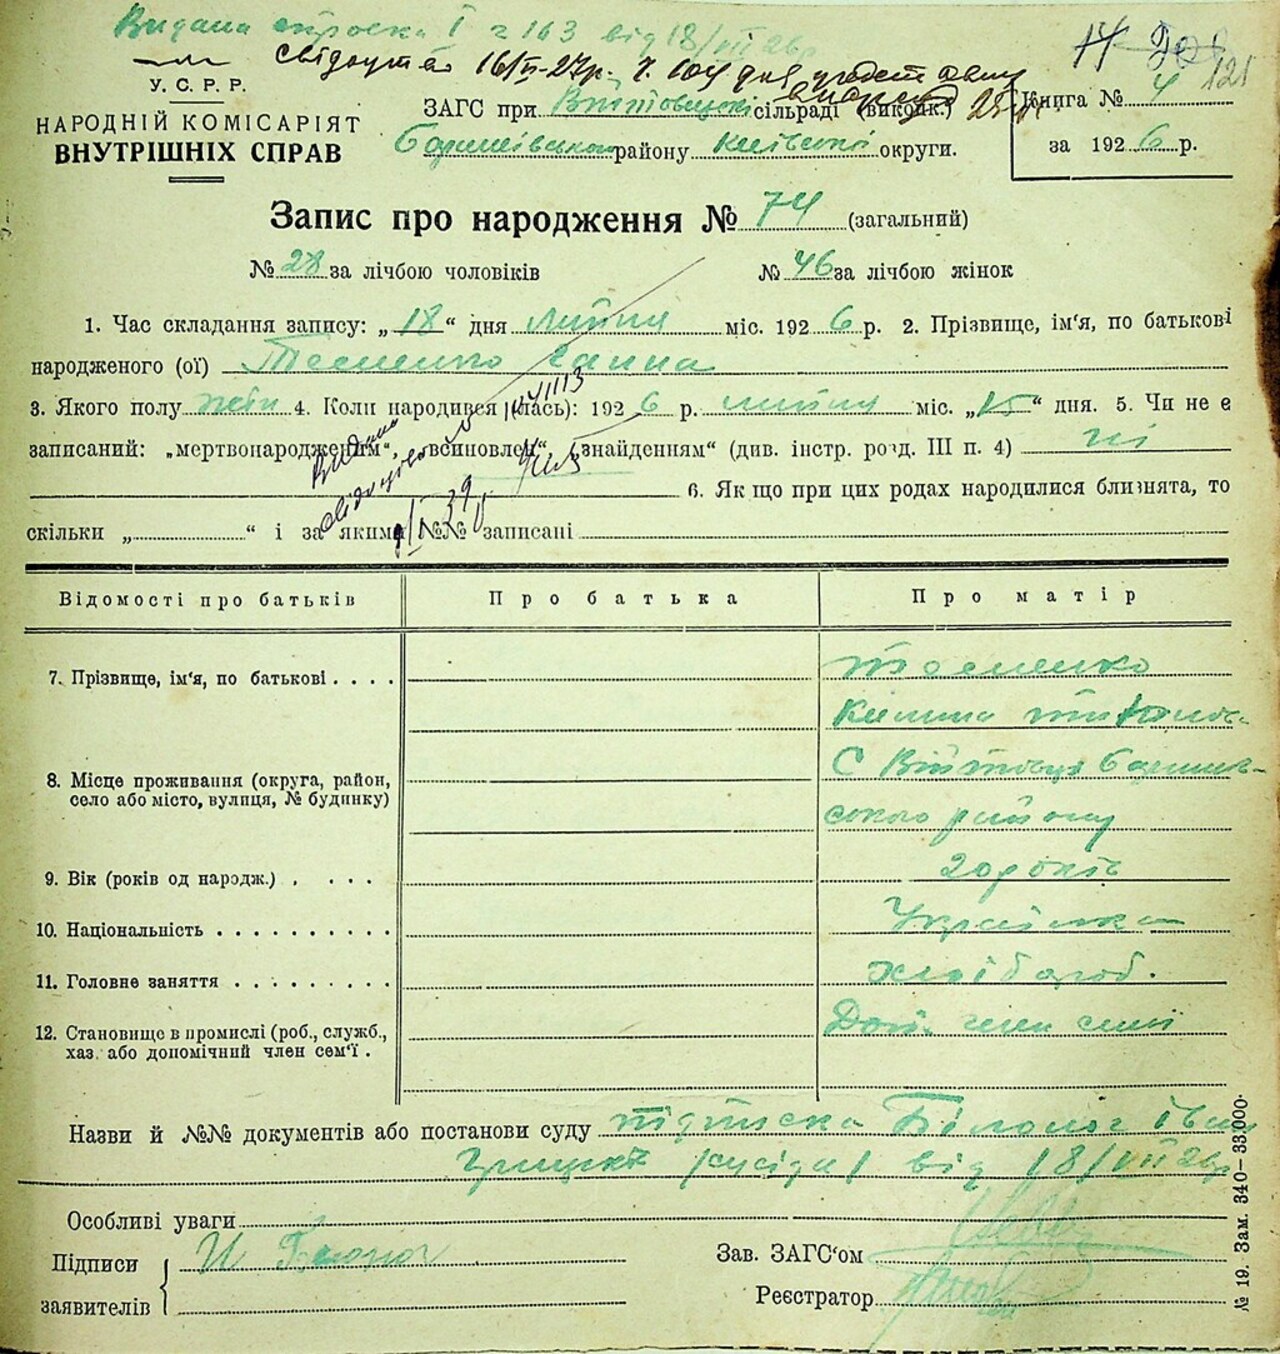 Видана виписка І ч 163 від 18/VII 26р
свідоцтво 16/II-27р. ч. 104 для
14
121
У. С. Р. Р.
НАРОДНІЙ КОМІСАРІЯТ
ВНУТРІШНІХ СПРАВ
ЗАГС при Війтовецькі сільраді (виконк.)
Баришівського району Київської округи.
Книга № 4
за 1926 р.
Запис про народження № 74 (загальний)
№ 28 за лічбою чоловіків № 46 за лічбою жінок
1. Час складання запису: „18“ дня липня міс. 1926 р. 2. Прізвище, ім'я, по батькові
народженого (ої) Тесленко Ганна
3. Якого полу жін 4. Коли народився (лась): 1926 р. липня міс. „15“ дня. 5. Чи не є
записаний: „мертвонародженим“, „всиновлен“, „знайденням“ (див. інстр. розд. III п. 4) ні
6. Як що при цих родах народилися близнята, то
скільки „ “ і за якими №№ записані
Видано
свідоцтво
Відомості про батьків Про батька Про матір
7. Прізвище, ім'я, по батькові . . . . Тесленко
8. Місце проживання (округа, район,
село або місто, вулиця, № будинку)
С Війтовці Баришів-
ського району
9. Вік (років од народж.) . . . . 20 років
10. Національність . . . . . . . . . . Українка
11. Головне заняття . . . . . . . . . хлібороб.
12. Становище в промислі (роб., служб.,
хаз. або допомічний член сем'ї .
Доп. член семї
Назви й №№ документів або постанови суду підписка Білоног Іван
/сусіда/ від 18/VII 26р
Особливі уваги
Підписи
заявителів
И Білоног
Зав. ЗАГС'ом
Реєстратор
№ 19. Зам. 340–33.000.